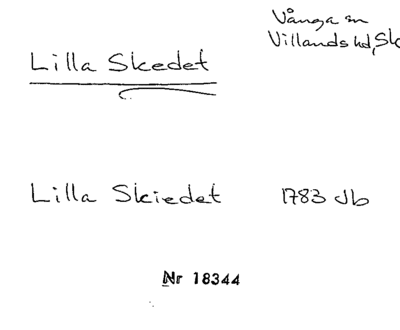 Vånga sn
Villands hd, Sk
Lilla Skedet
Lilla Skiedet 1783 Jb
Nr 18344